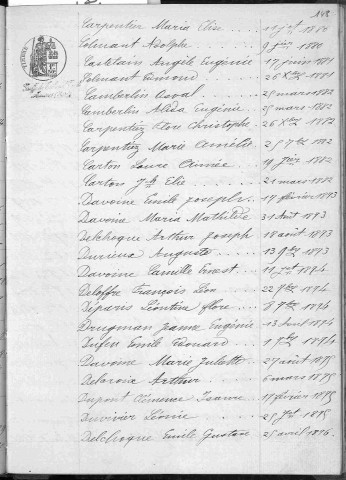 148
Carpentier Maria Elise 11 jet 1880
Colmant Adolphe 9 1880
Castelain Angèle Eugénie 17 juin 1881
Colmant Edmond 26 Xbre 1881
Cambertin 25 mars 1882
Cambertin Alida Eugénie 25 mars 1882
Carpentier Flore Christophe 26 Xbre 1882
Carpentier Marie Cornélie 2 7bre 1882
Carton Laure Aimée 19 1882
Carton Jh Elie 21 mars 1882
Davoine Emile Joseph 17 février 1893
Davoine Maria Mathilde 31 Août 1893
Delehoque Arthur Joseph 18 août 1893
Durieux Auguste 13 9bre 1893
Davoine Camille Ernest 11 1894
Deloffre François Léon 22 7bre 1894
Déparis Léontine flore 8 7bre 1894
Drugman Jeanne Eugénie 13 Août 1894
Dufer Emile Edouard 1 7bre 1894
Davoine Marie Juliette 27 août 1895
Delacroix Arthur 6 mars 1895
Dupont Clémence Jeanne 17 février 1895
Duvivier Léonie 25 1895
Delehoque Emile Gustave 25 avril 1896